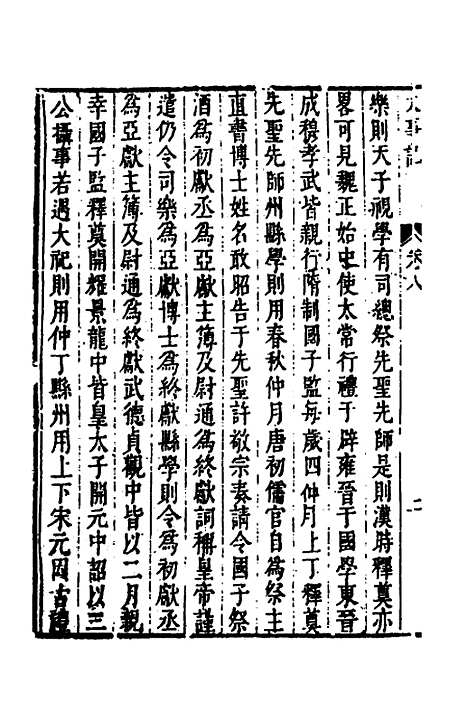 樂則天子視學有司總祭先聖先師是則漢時釋奠亦
畧可見魏正始中使太常行禮于辟雍晉于國學東晉
成穆孝武皆親行隋制國子監每歲四仲月上丁釋奠
先聖先師州縣學則用春秋仲月唐初儒官自為祭主
直書博士姓名敢昭告于先聖許敬宗奏請令國子祭
酒為初獻丞為亞獻主簿及尉通為終獻詞稱皇帝謹
遣仍令司樂為亞獻博士為終獻縣學則令為初獻丞
為亞獻主簿及尉通為終獻武德貞觀中皆以二月親
幸國子監釋奠開耀景龍中皆皇太子開元中詔以三
公攝事若遇大祀則用仲丁縣州用上下宋元因古禮
卷八
二